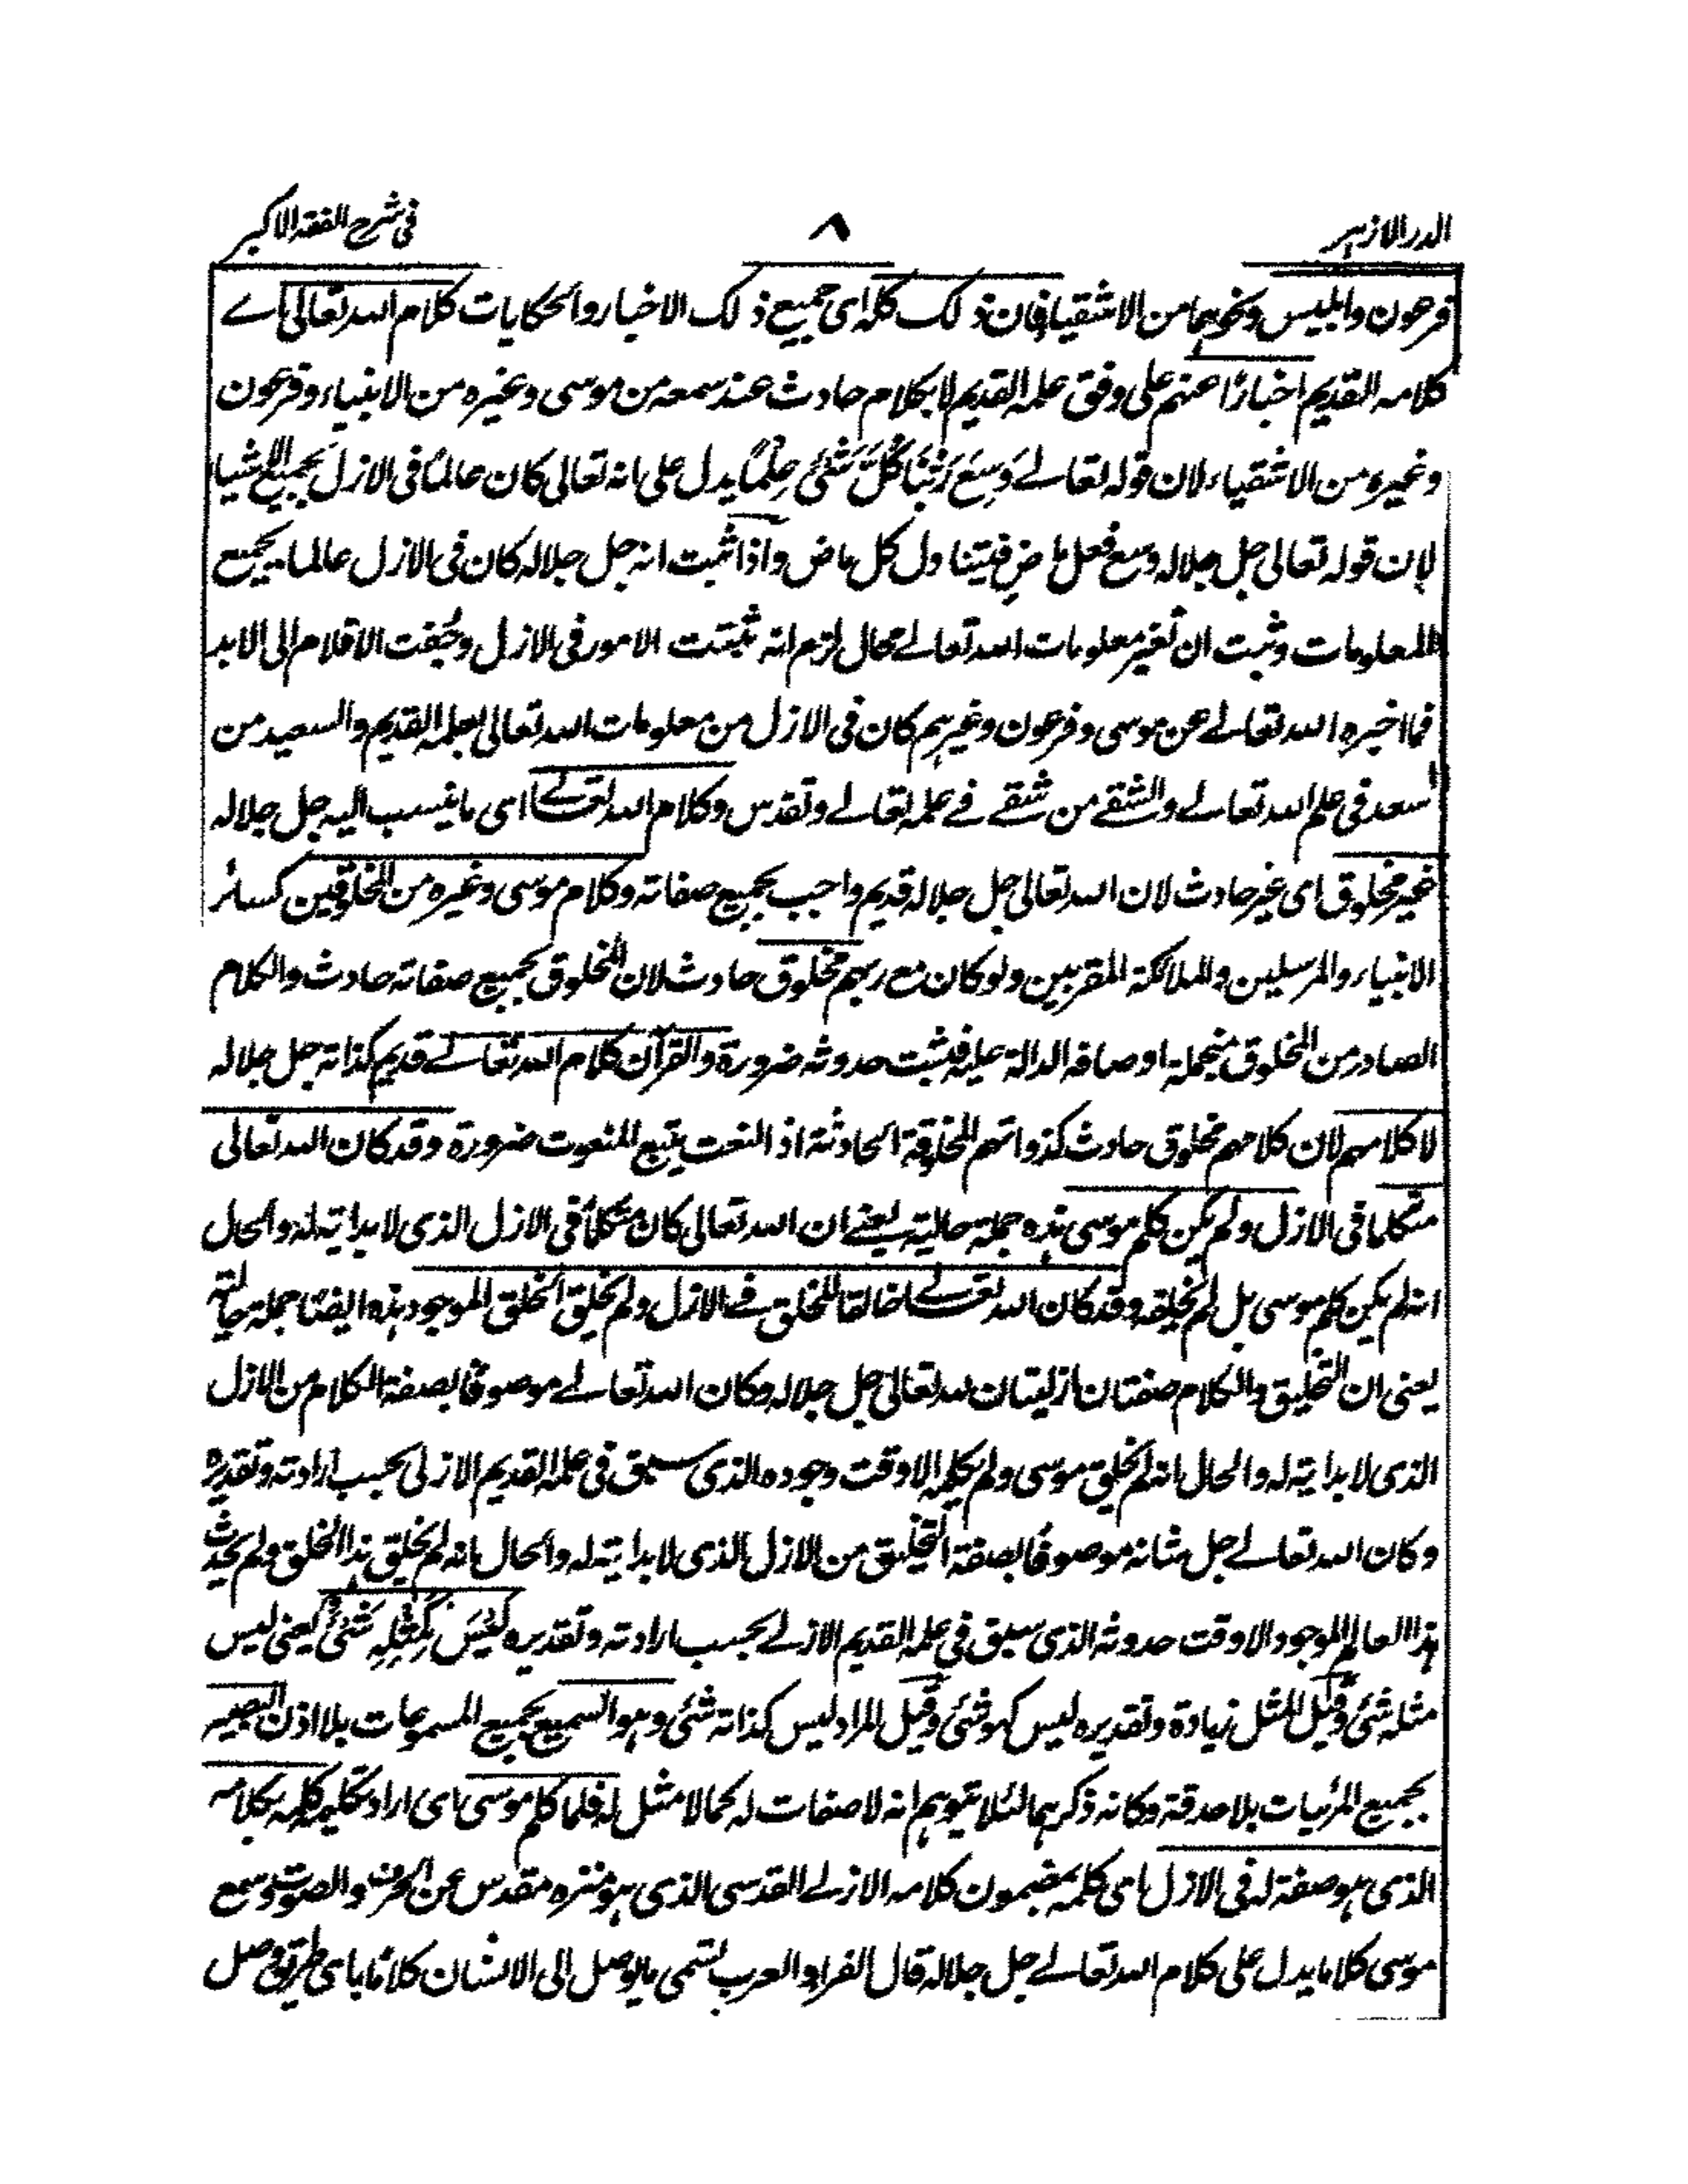 الدر الازہر ۸ فی شرح الفقہ الاکبر
فرعون وابلیس ونحوہما من الاشقیاء فان ذلک کلہ ای جمیع ذلک الاخبار والحکایات کلام اللہ تعالی اے
کلامہ القدیم اخبارًا عنہم علی وفق علمہ القدیم لا بکلام حادث عند سمعہ من موسی وغیرہ من الانبیاء وفرعون
وغیرہ من الاشقیاء لان قولہ تعالے وَسِعَ رَبُّنَا کُلَّ شَئْیٍ عِلْمًا یدل علی انہ تعالی کان عالمًا فی الازل بجمیع الاشیا
لان قولہ تعالی جل جلالہ وسع فعل ماضٍ فیتناول کل ماض واذا ثبت انہ جل جلالہ کان فی الازل عالما بجمیع
المعلومات وثبت ان تغیر معلومات اللہ تعالے محال لزم انہ ثبتت الامور فی الازل وجُفت الاقلام الی الابد
فما اخبرہ اللہ تعالے عن موسی وفرعون وغیرہم کان فی الازل من معلومات اللہ تعالی بعلمہ القدیم والسعید من
سعد فی علم اللہ تعالے والشقے من شقے فے علمہ تعالے وتقدس وکلام اللہ تعالے ای ما ینسب الیہ جل جلالہ
غیر مخلوق ای غیر حادث لان اللہ تعالی جل جلالہ قدیم واجب بجمیع صفاتہ وکلام موسی وغیرہ من المخلوقین کسائر
الانبیاء والمرسلین والملائکۃ المقربین ولو کان مع ربہم مخلوق حادث لان المخلوق بجمیع صفاتہ حادث والکلام
الصادر من المخلوق منجملۃ اوصافہ الدالۃ علیہ فیثبت حدوثہ ضرورۃ والقرآن کلام اللہ تعالے قدیم کذاتہ جل جلالہ
لا کلامہم لان کلامہم مخلوق حادث کذواتہم المخلوقۃ الحادثۃ اذ النعت یتبع المنعوت ضرورۃ وقد کان اللہ تعالی
متکلما فی الازل ولم یکن کلم موسی ہذہ جملۃ حالیۃ یعنے ان اللہ تعالی کان متکلمًا فی الازل الذی لا بدایتہ لہ والحال
انہ لم یکن کلم موسی بل لم یخلقہ وقد کان اللہ تعالے خالقا للخلق فے الازل ولم یخلق الخلق الموجود ہذہ ایضًا جملۃ حالیۃ
یعنی ان التخلیق والکلام صفتان ازلیتان للہ تعالی جل جلالہ وکان اللہ تعالے موصوفًا بصفۃ الکلام من الازل
الذی لا بدایتہ لہ والحال انہ لم یخلق موسی ولم یکلمہ الا وقت وجودہ الذی سبق فی علمہ القدیم الازلی بحسب ارادتہ وتقدیرہ
وکان اللہ تعالے جل شانہ موصوفًا بصفۃ التخلیق من الازل الذی لا بدایتہ لہ والحال انہ لم یخلق ہذا الخلق ولم یحدث
ہذا العالم الموجود الا وقت حدوثہ الذی سبق فی علمہ القدیم الازلے بحسب ارادتہ وتقدیرہ لَیْسَ کَمِثْلِہٖ شَئْیٌ یعنی لیس
مثلہ شئی وقیل المثل زیادۃ وتقدیرہ لیس کہو شئی وقیل المراد لیس کذاتہ شئی وہو السمیع بجمیع المسموعات بلا اذن البصیر
بجمیع المرئیات بلا حدقۃ وکانہ ذکرہما لئلا یتوہم انہ لا صفات لہ کما لا مثل لہ فلما کلم موسی ای اراد تکلیمہ کلمہ بکلامہ
الذی ہو صفۃ لہ فی الازل ای کلمہ بمضمون کلامہ الازلے القدسی الذی ہو منزہ مقدس عن الحرف والصوت وسمع
موسی کلاما یدل علی کلام اللہ تعالے جل جلالہ قال الفراء والعرب تسمی ما یوصل الی الانسان کلامًا بای طریق وصل